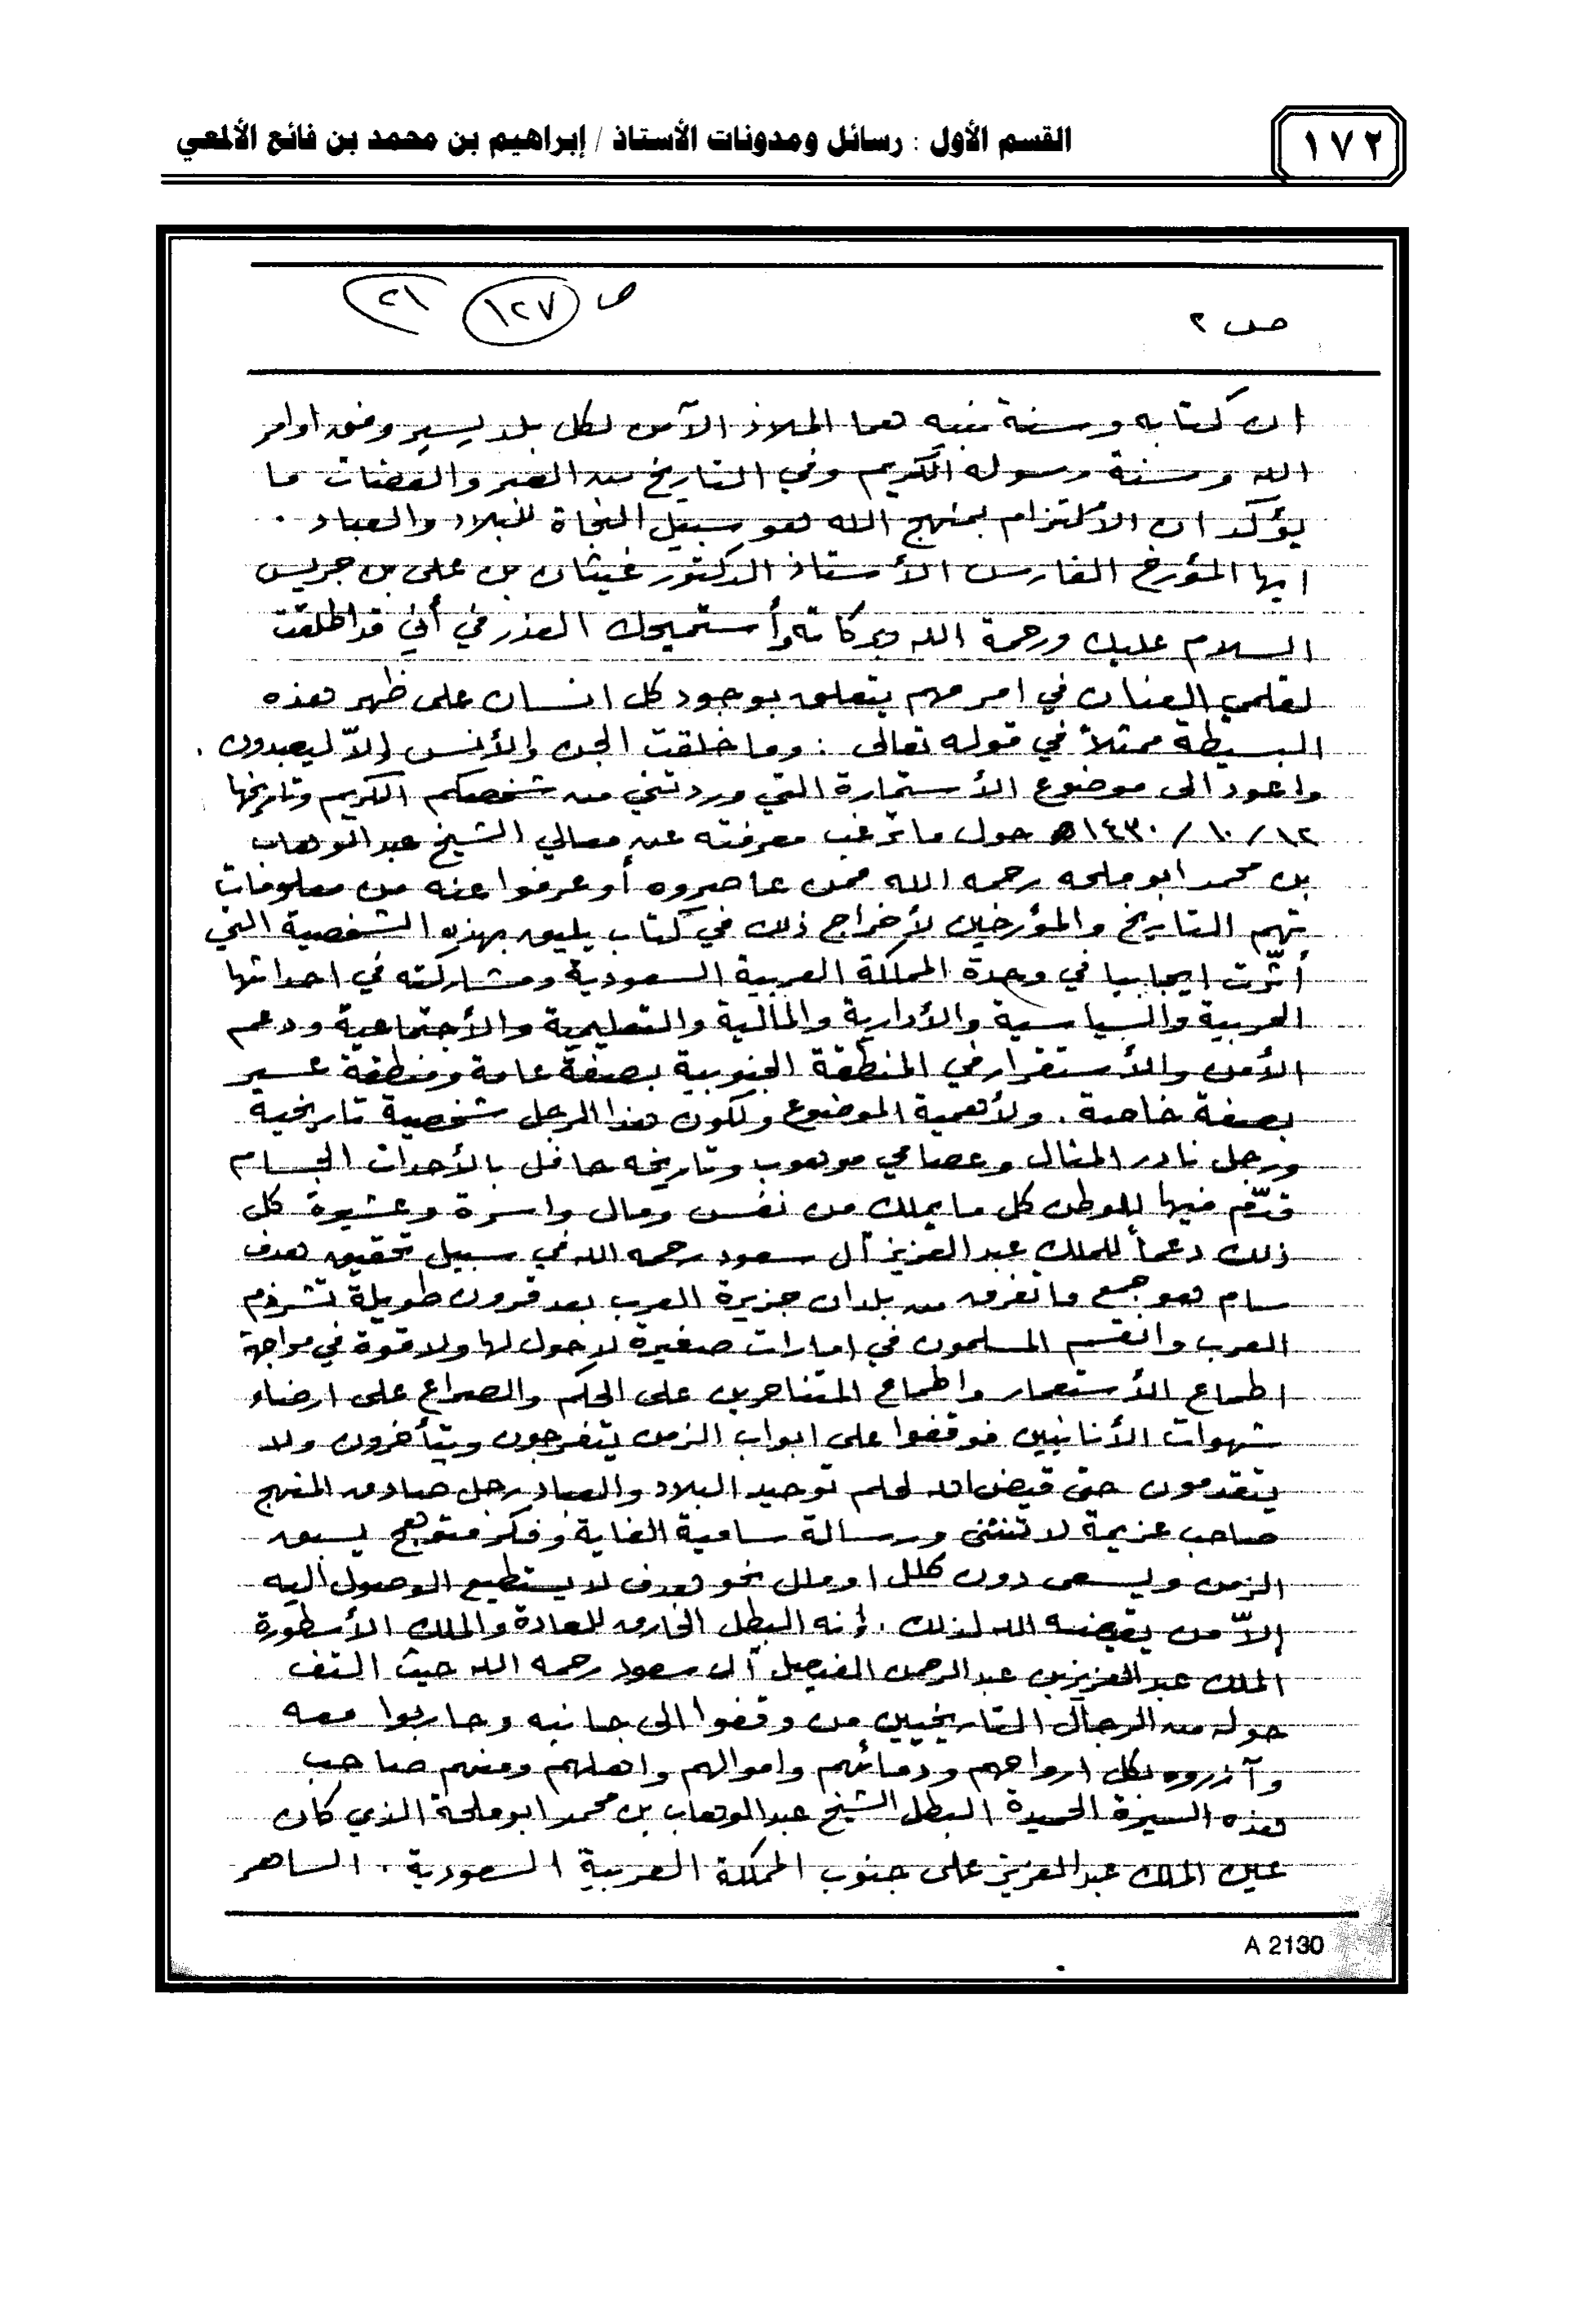 ١٧٢
القسم الأول : رسائل ومدونات الأستاذ / إبراهيم بن محمد بن فائع الألمعي
ص ٢
ص ١٢٧ ٢١
ان كتابه وسنة نبيه هما الملاذ الآمن لكل بلد يسير وفق اوامر
الله وسنة رسوله الكريم وفي التاريخ من العبر والعضات ما
يؤكد ان الألتزام بمنهج الله هو سبيل النجاة للبلاد والعباد .
ايها المؤرخ الفارس الأستاذ الدكتور غيثان بن علي بن جريس
السلام عليك ورحمة الله وبركاته وأستميحك العذر في أني قد اطلقت
لقلمي العنان في امر مهم يتعلق بوجود كل انسان على ظهر هذه
البسيطة ممثلاً في قوله تعالى : وما خلقت الجن والأنس إلاّ ليعبدون .
واعود الى موضوع الأستمارة التي وردتني من شخصكم الكريم وتاريخها
١٢ / ١٠ / ١٤٣٠هـ حول ما ترغب معرفته عن معالي الشيخ عبدالوهاب
بن محمد ابو ملحه رحمه الله ممن عاصروه أو عرفوا عنه من معلومات
تهم التاريخ والمؤرخين لأخراج ذلك في كتاب يليق بهذه الشخصية التي
أثّرت ايجابيا في وحدة المملكة العربية السعودية ومشاركته في احداثها
العربية والسياسية والأدارية والمالية والتعليمية والأجتماعية ودعم
الأمن والأستقرار في المنطقة الجنوبية بصفة عامة ومنطقة عسير
بصفة خاصة . ولأهمية الموضوع ولكون هذا الرجل شخصية تاريخية
ورجل نادر المثال وعصامي موهوب وتاريخه حافل بالأحداث الجسام
قدّم فيها للوطن كل ما يملك من نفس ومال واسرة وعشيرة كل
ذلك دعماً للملك عبدالعزيز آل سعود رحمه الله في سبيل تحقيق هدف
سام هو جمع ما تفرق من بلدان جزيرة العرب بعد قرون طويلة تشرذم
العرب وانقسم المسلمون في امارات صغيرة لاحول لها ولا قوة في مواجهة
اطماع الأستعمار واطماع المتناحرين على الحكم والصراع على ارضاء
شهوات الأنانيين فوقفوا على ابواب الزمن يتفرجون ويتأخرون ولا
يتقدمون حتى قيض الله لحلم توحيد البلاد والعباد رجل صادق المنهج
صاحب عزيمة لا تنثنى ورسالة سامية الغاية وفكر متوهج يسبق
الزمن ويسعى دون كلل او ملل نحو هدف لا يستطيع الوصول اليه
إلاّ من يقيضه الله لذلك . إنه البطل الخارق للعادة والملك الأسطورة
الملك عبدالعزيز بن عبدالرحمن الفيصل آل سعود رحمه الله حيث التف
حوله من الرجال التاريخيين من وقفوا الى جانبه وحاربوا معه
وآزروه بكل ارواحهم ودمائهم واموالهم واهلهم ومنهم صاحب
هذه السيرة الحميدة البطل الشيخ عبدالوهاب بن محمد ابو ملحة الذي كان
عين الملك عبدالعزيز على جنوب المملكة العربية السعودية . الساهر
A 2130